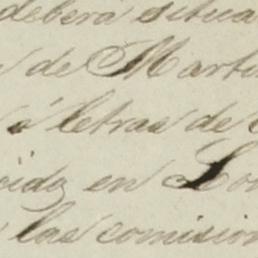 deberá situa
de Marti
á letras de
cido en Lon
las comision